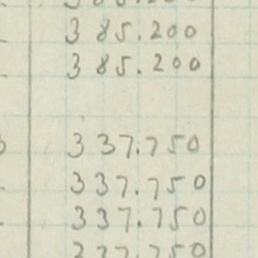 385.200
385.200
337.750
337.750
337.750
337.750